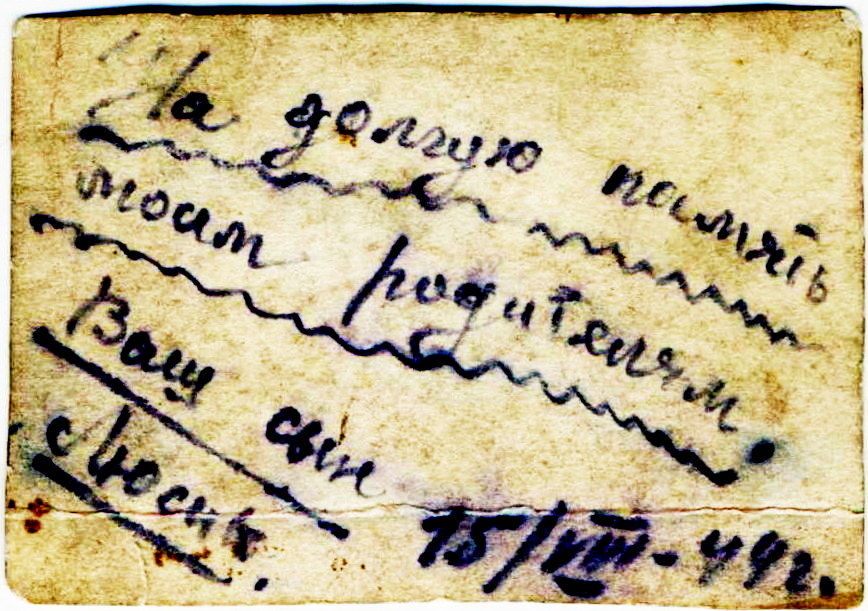 На долгую память
моим родителям.
Ваш сын
Люсик.
15/VIII-44г.